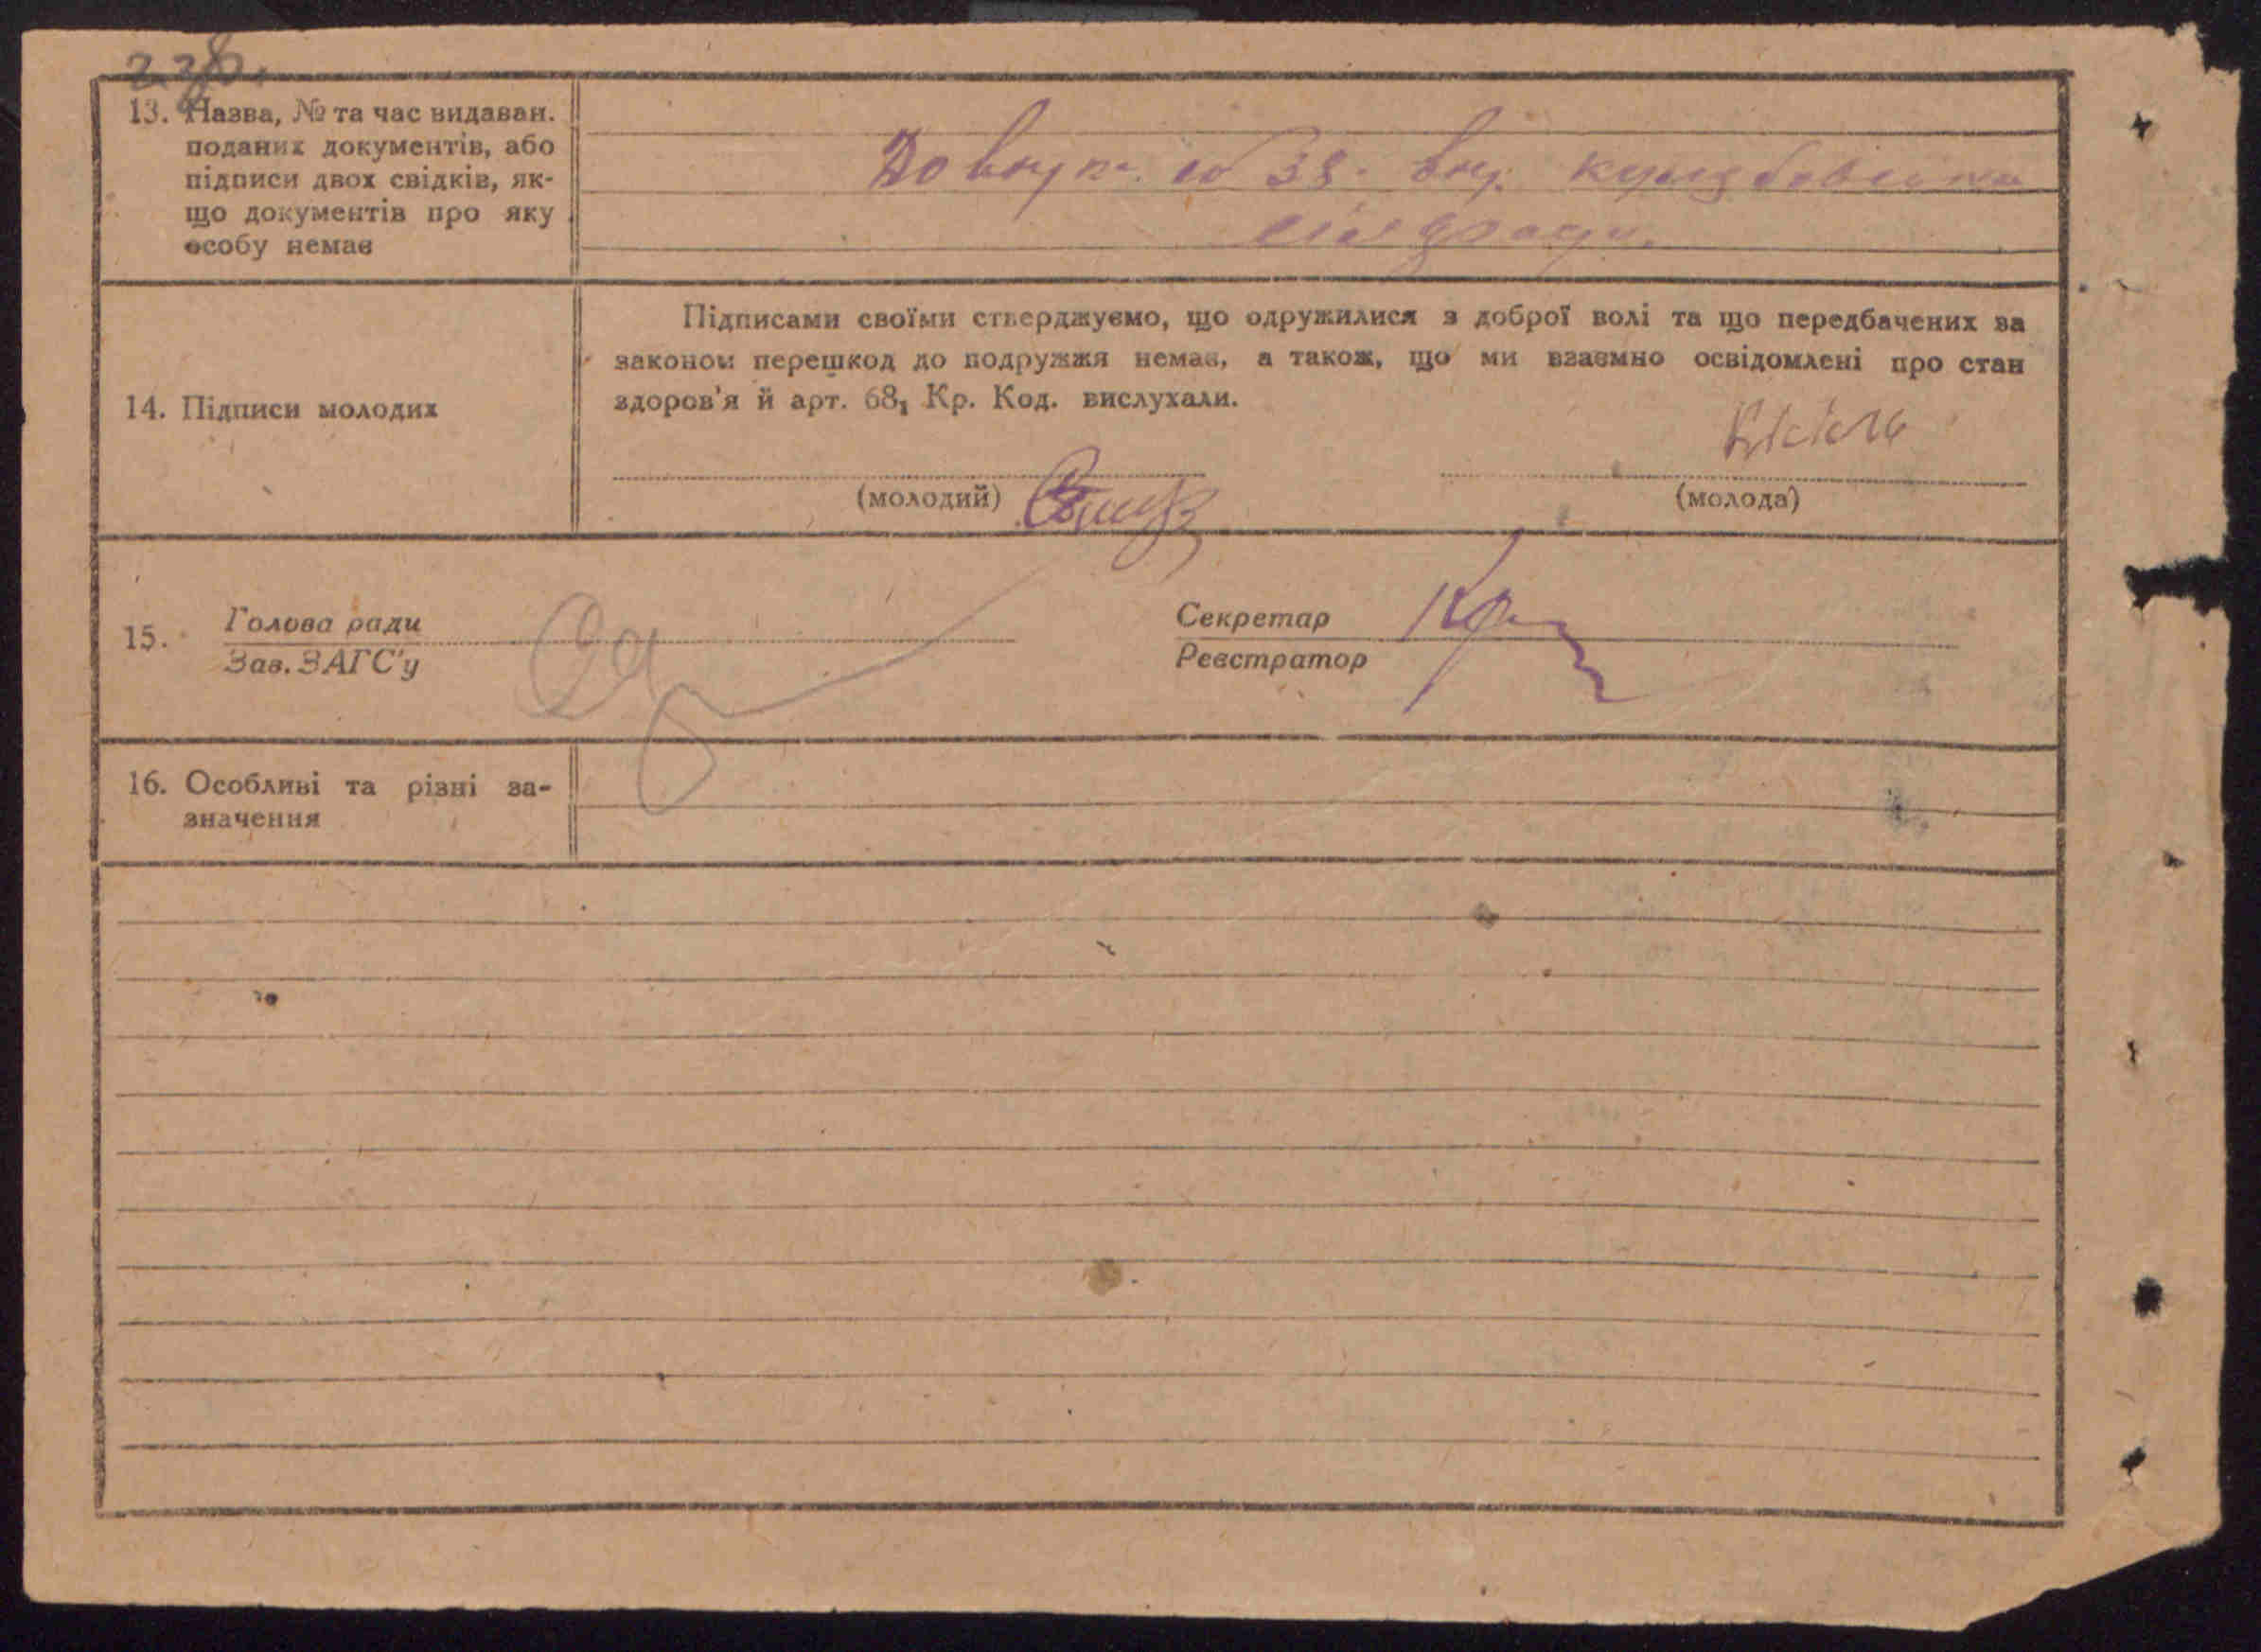 13. Назва, № та час видаван.
поданих документів, або
підписи двох свідків, як-
що документів про яку
особу немає
38.
14. Підписи молодих
Підписами своїми стверджуємо, що одружилися з доброї волі та що передбачених за
законом перешкод до подружжя немає, а також, що ми взаємно освідомлені про стан
здоров'я й арт. 68₁ Кр. Код. вислухали.
(молодий)
(молода)
15. Голова ради
Зав. ЗАГС'у
Секретар
Реєстратор
16. Особливі та різні за-
значення